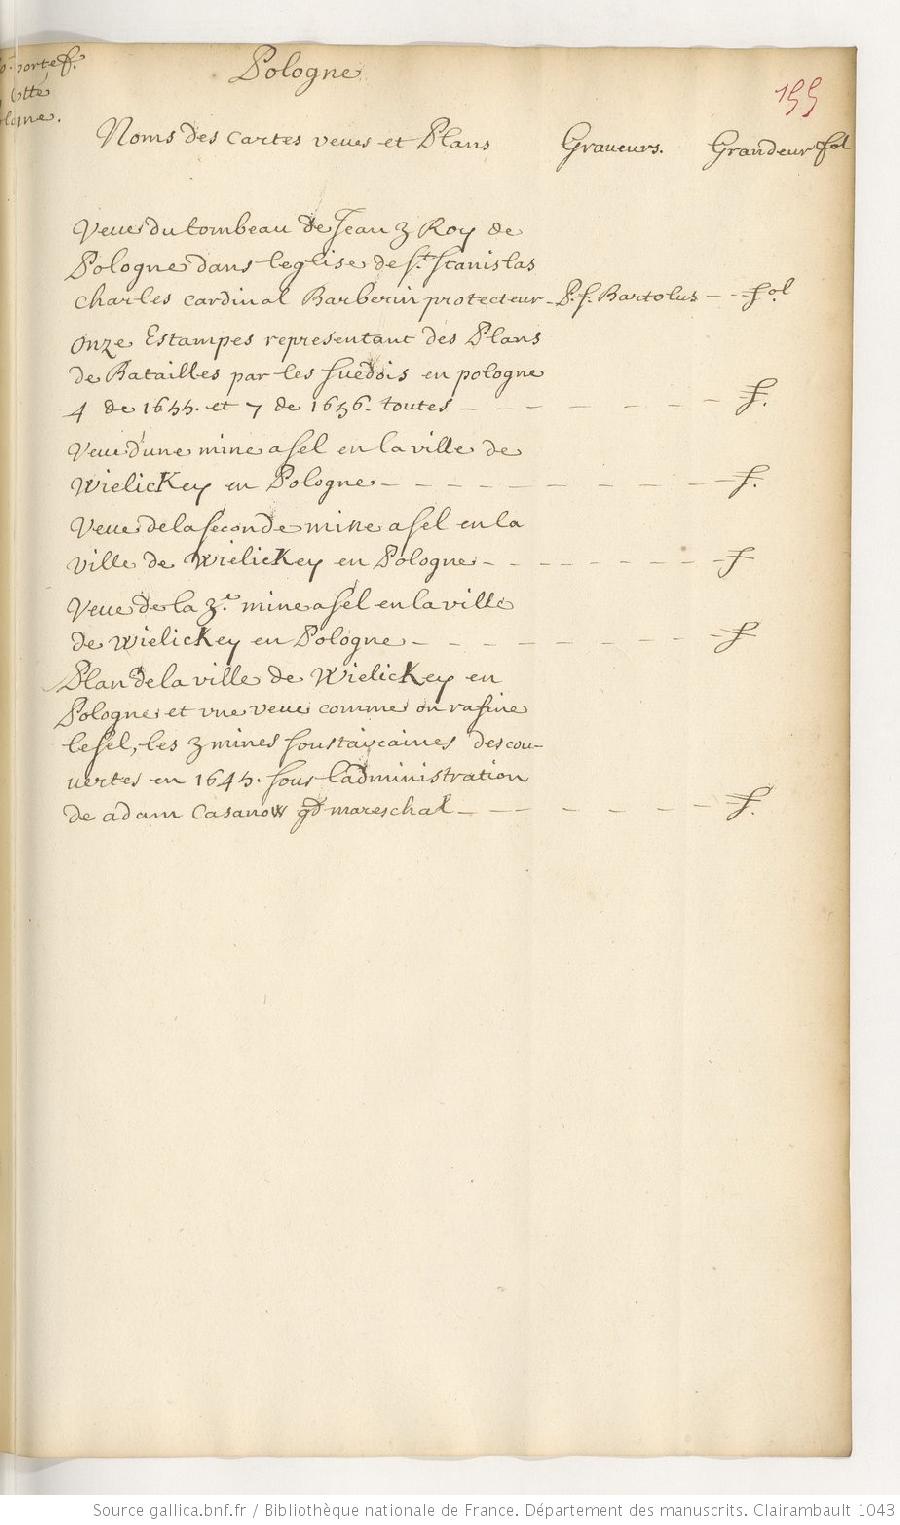 portef.
Pologne
155
Noms des cartes veues et Plans Graveurs. Grandeur fol
Veue du tombeau de Jean 3 Roy de
Pologne dans leglise de St. Stanislas
charles cardinal Barberin protecteur - P. s. Bartolus - - fol
onze Estampes representant des Plans
de Batailles par les suedois en pologne
4 de 1655. et 7 de 1656. toutes - - - - - - f.
Veue d'une mine a sel en la ville de
WielicKey en Pologne - - - - - - - - - f.
Veue de la seconde mine a sel en la
ville de WielicKey en Pologne - - - - - - - f
Veue de la 3.e mine a sel en la ville
de WielicKey en Pologne - - - - - - - - f
Plan de la ville de WielicKey en
Pologne et vne veue comme on rafine
le sel, les 3 mines soustairaines descou-
uertes en 1645. sous l'administration
de adam Casanow gd mareschal - - - - - - f.
Source gallica.bnf.fr / Bibliothèque nationale de France. Département des manuscrits. Clairambault 1043